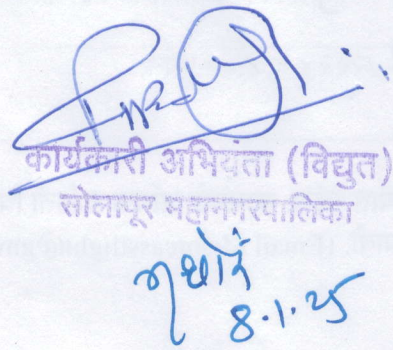 कार्यकारी अभियंता (विद्युत)
सोलापूर महानगरपालिका
8.1.25